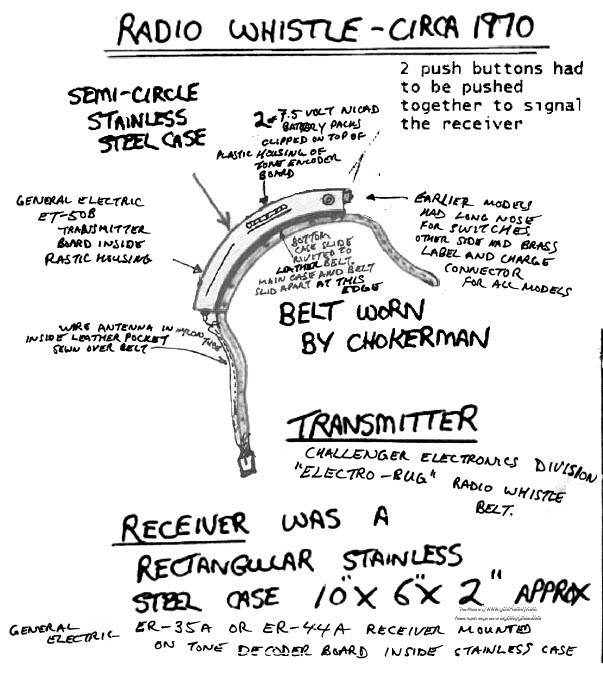 RADIO WHISTLE - CIRCA 1970
2 push buttons had
to be pushed
together to signal
the receiver
SEMI-CIRCLE
STAINLESS
STEEL CASE
2 * 7.5 VOLT NICAD
BATTERY PACKS
CLIPPED ON TOP OF
PLASTIC HOUSING OF
TONE ENCODER
BOARD
GENERAL ELECTRIC
ET-50B
TRANSMITTER
BOARD INSIDE
PLASTIC HOUSING
EARLIER MODELS
HAD LONG NOSE
FOR SWITCHES.
OTHER SIDE HAD BRASS
LABEL AND CHARGE
CONNECTOR
FOR ALL MODELS
BOTTOM
CASE SLIDE
RIVITED TO
LEATHER BELT.
MAIN CASE AND BELT
SLID APART AT THIS
EDGE
BELT WORN
BY CHOKERMAN
WIRE ANTENNA IN NYLON TUBE
INSIDE LEATHER POCKET
SEWN OVER BELT
TRANSMITTER
CHALLENGER ELECTRONICS DIVISION
"ELECTRO-BUG" RADIO WHISTLE
BELT.
RECEIVER WAS A
RECTANGULAR STAINLESS
STEEL CASE 10" X 6" X 2" APPROX
GENERAL ELECTRIC ER-35A OR ER-44A RECEIVER MOUNTED
ON TONE DECODER BOARD INSIDE STAINLESS CASE